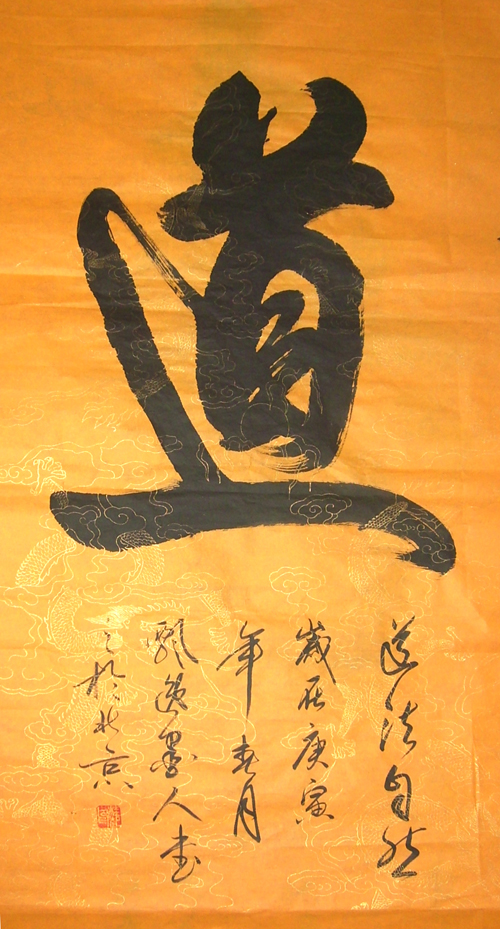 道
道法自然
歲在庚寅
年春月
飄逸墨人書
於北京